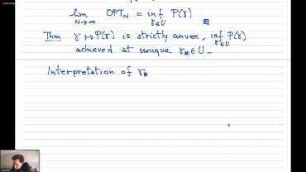 lim OPT_N = inf P(γ)
N→∞ γ∈U
Thm γ ↦ P(γ) is strictly convex, inf P(γ)
γ∈U
achieved at unique γ_* ∈ U.
Interpretation of γ_*